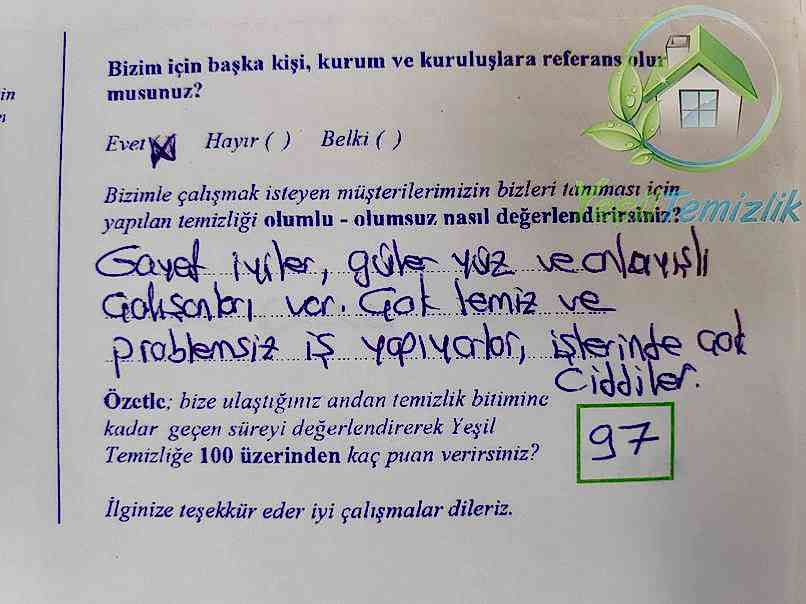 in
Bizim için başka kişi, kurum ve kuruluşlara referans olur
musunuz?
Evet (X) Hayır ( ) Belki ( )
Bizimle çalışmak isteyen müşterilerimizin bizleri tanıması için
yapılan temizliği olumlu - olumsuz nasıl değerlendirirsiniz?
Yeşil Temizlik
Gayet iyiler, güler yüz ve anlayışlı
Çalışanları var. Çok temiz ve
problemsiz iş yapıyorlar, işlerinde çok
Ciddiler.
Özetle; bize ulaştığınız andan temizlik bitimine
kadar geçen süreyi değerlendirerek Yeşil
Temizliğe 100 üzerinden kaç puan verirsiniz?
97
İlginize teşekkür eder iyi çalışmalar dileriz.